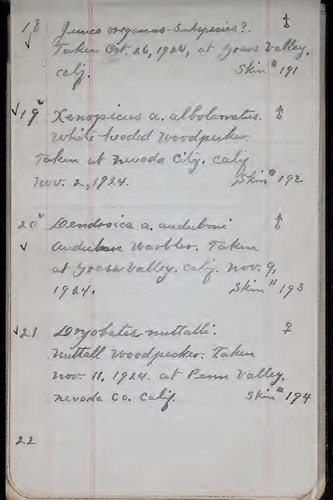 18 Junco oreganus - Subspecies? ♂
Taken Oct. 26, 1924, at Grass Valley,
Calif. Skin # 191
√19 Xenopicus a. albolarvatus. ♂
White-headed Woodpecker.
Taken at Nevada City. Calif
Nov. 2, 1924. Skin # 192
20 Dendroica a. auduboni ♂
√ Audubon Warbler. Taken
at Grass Valley. Calif. Nov. 9,
1924. Skin # 193
√21 Dryobates nuttalli. ♀
Nuttall Woodpecker. Taken
Nov. 11, 1924. at Penn Valley,
Nevada Co. Calif Skin # 194
22